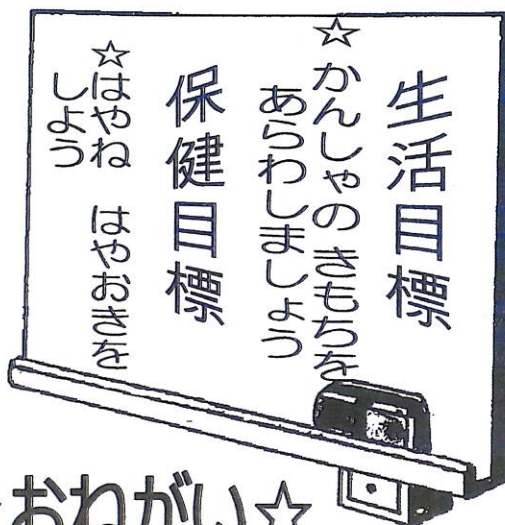 生活目標
☆かんしゃの きもちを
あらわしましょう
保健目標
☆はやね はやおきを
しよう
おねがい☆